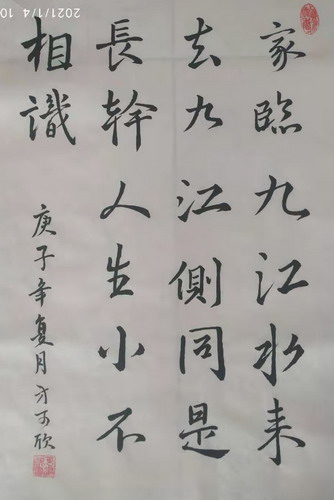 家臨九江水来
去九江側同是
長幹人生小不
相識
庚子年夏月方可欣
2021/1/4 10